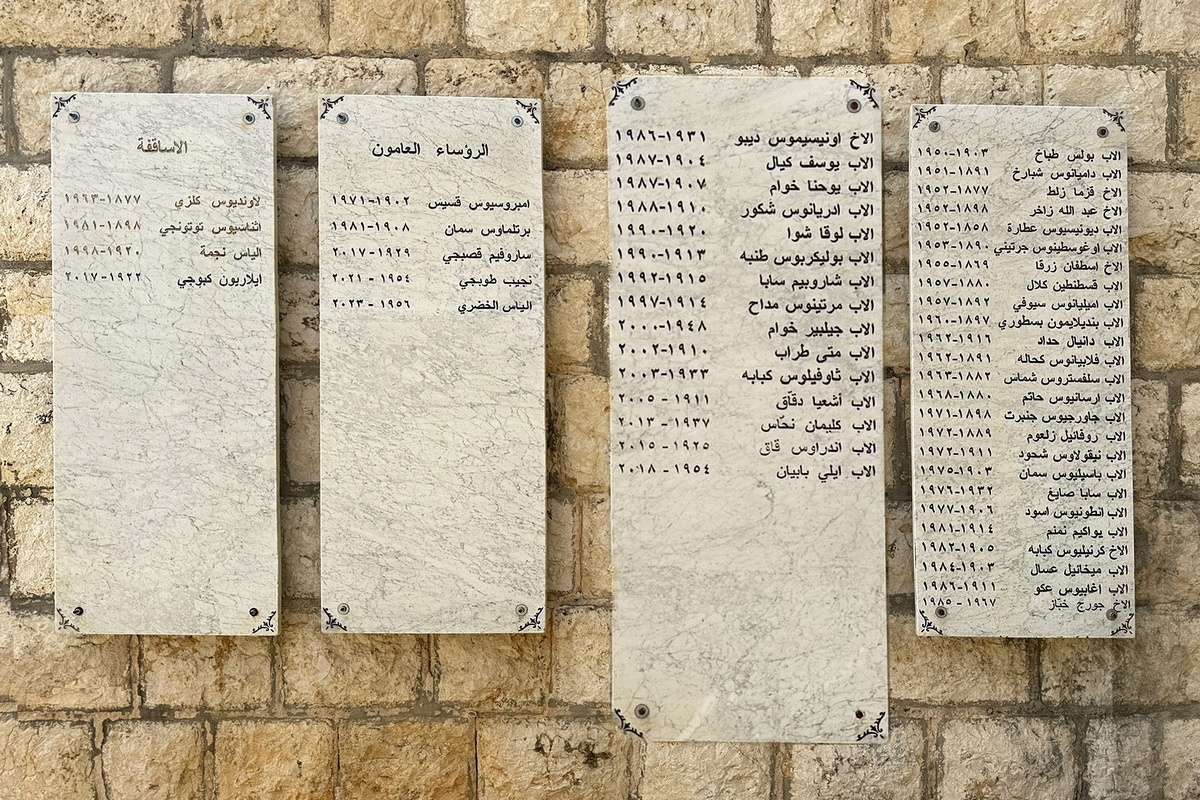 الاب بولس طباخ ١٩٠٣-١٩٥٠
الاب داميانوس شبارخ ١٨٩١-١٩٥١
الاخ قزما زلط ١٨٧٧-١٩٥٢
الاخ عبد الله زاخر ١٨٩٨-١٩٥٢
الاب ديونيسيوس عطارة ١٨٥٨-١٩٥٢
الاب اوغوسطينوس جرتيني ١٨٩٠-١٩٥٣
الاخ اسطفان زرقا ١٨٦٩-١٩٥٥
الاب قسطنطين كلال ١٨٨٠-١٩٥٧
الاب اميليانوس سيوفي ١٨٩٢-١٩٥٧
الاب بنديلايمون بسطوري ١٨٩٧-١٩٦٠
الاب دانيال حداد ١٩١٦-١٩٦٢
الاب فلابيانوس كحاله ١٨٩١-١٩٦٢
الاب سلفستروس شماس ١٨٨٢-١٩٦٣
الاب ارسانيوس حاتم ١٨٨٠-١٩٦٨
الاب جاورجيوس جنبرت ١٨٩٨-١٩٧١
الاب روفائيل زلعوم ١٨٨٩-١٩٧٢
الاب نيقولاوس شحود ١٩١١-١٩٧٢
الاب باسيليوس سمان ١٩٠٣-١٩٧٥
الاب سابا صايغ ١٩٣٢-١٩٧٦
الاب انطونيوس اسود ١٩٠٦-١٩٧٧
الاب يواكيم نمنم ١٩١٤-١٩٨١
الاخ كرنيليوس كبابه ١٩٠٥-١٩٨٢
الاب ميخائيل عسال ١٩٠٣-١٩٨٤
الاب اغابيوس عكو ١٩١١-١٩٨٦
الاخ جورج خبّاز ١٩٦٧ - ١٩٨٥
الاخ اونيسيموس ديبو ١٩٣١-١٩٨٦
الاب يوسف كيال ١٩٠٤-١٩٨٧
الاب يوحنا خوام ١٩٠٧-١٩٨٧
الاب ادريانوس شكور ١٩١٠-١٩٨٨
الاب لوقا شوا ١٩٢٠-١٩٩٠
الاب بوليكربوس طنبه ١٩١٣-١٩٩٠
الاب شاروبيم سابا ١٩١٥-١٩٩٢
الاب مرتينوس مداح ١٩١٤-١٩٩٧
الاب جيلبير خوام ١٩٤٨-٢٠٠٠
الاب متى طراب ١٩١٠-٢٠٠٢
الاب ثاوفيلوس كبابه ١٩٣٣-٢٠٠٣
الاب أشعيا دقّاق ١٩١١ - ٢٠٠٥
الاب كليمان نحّاس ١٩٣٧ - ٢٠١٣
الاب اندراوس قاق ١٩٢٥ - ٢٠١٥
الاب ايلي بابيان ١٩٥٤ - ٢٠١٨
الرؤساء العامون
امبروسيوس قسيس ١٩٠٢-١٩٧١
برتلماوس سمان ١٩٠٨-١٩٨١
ساروفيم قصبجي ١٩٢٩-٢٠١٧
نجيب طوبجي ١٩٥٤ - ٢٠٢١
الياس الخضري ١٩٥٦ - ٢٠٢٣
الاساقفة
لاونديوس كلزي ١٨٧٧-١٩٦٣
اثناسيوس توتونجي ١٨٩٨-١٩٨١
الياس نجمة ١٩٢٠-١٩٩٨
ايلاريون كبوجي ١٩٢٢-٢٠١٧